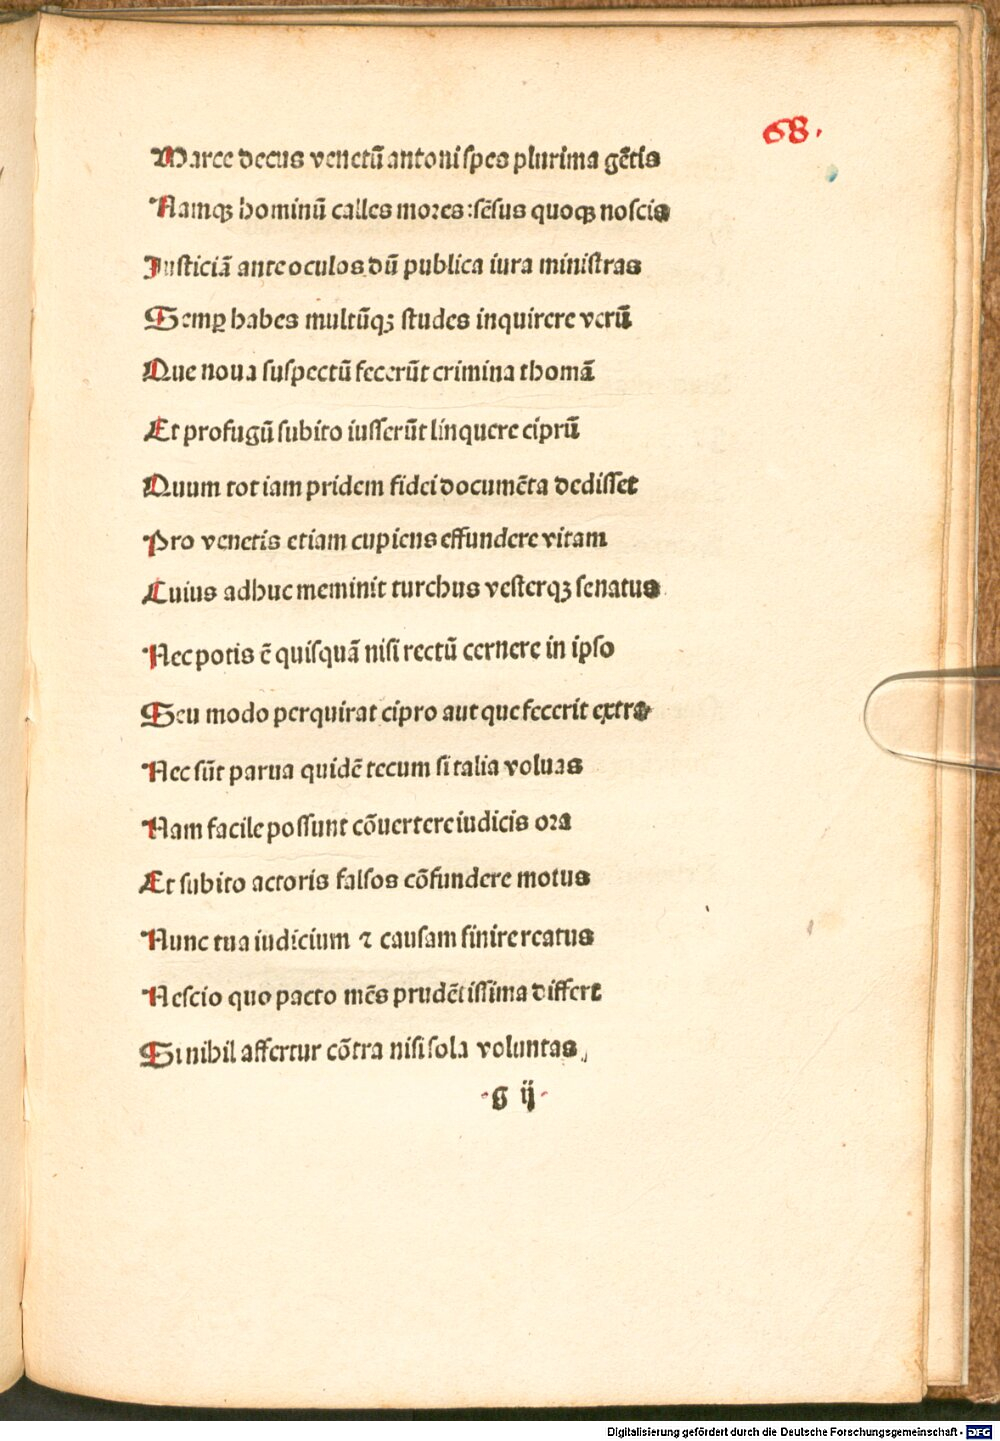 68.
Marce decus venetū antoni spes plurima gētis
Namqꝫ hominū calles mores: sēsus quoqꝫ noscis
Iusticiā ante oculos dū publica iura ministras
Semꝑ habes multūqꝫ studes inquirere verū
Que noua suspectū fecerūt crimina thomā
Et profugū subito iusserūt linquere ciprū
Quum tot iam pridem fidei documēta dedisset
Pro venetis etiam cupiens effundere vitam
Cuius adhuc meminit turchus vesterqꝫ senatus
Nec potis ē quisquā nisi rectū cernere in ipso
Seu modo perquirat cipro aut que fecerit extra
Nec sūt parua quidē tecum si talia voluas
Nam facile possunt cōuertere iudicis ora
Et subito actoris falsos cōfundere motus
Nunc tua iudicium ⁊ causam finire reatus
Nescio quo pacto mēs prudētissima differt
Si nihil affertur cōtra nisi sola voluntas.
·G ij·
Digitalisierung gefördert durch die Deutsche Forschungsgemeinschaft - DFG